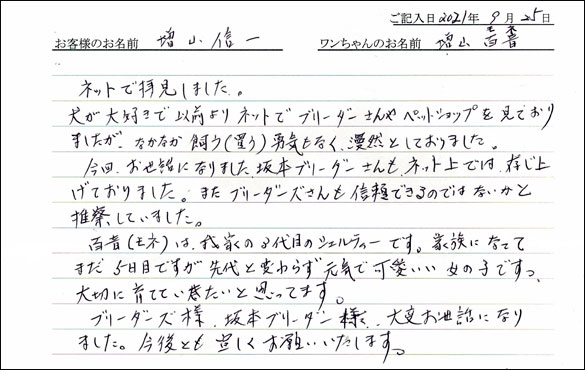 ご記入日 2021年 9月 25日
お客様のお名前 増山信一 ワンちゃんのお名前 増山 百音 モネ
ネットで拝見しました。
犬が大好きで以前よりネットでブリーダーさんやペットショップを見ており
ましたが、なかなか飼う(買う)勇気もなく、漫然としておりました。
今回、お世話になりました坂本ブリーダーさんも、ネット上では、存じ上
げておりました。また ブリーダーズさんも信頼できるのではないかと
推察していました。
百音(モネ)は、我家の3代目のシェルティーです。家族になって
まだ5日目ですが先代と変わらず元気で可愛いい女の子ですっ、
大切に育てていきたいと思ってます。
ブリーダーズ様、坂本ブリーダー様、大変お世話になり
ました。今後とも宜しくお願いいたします。